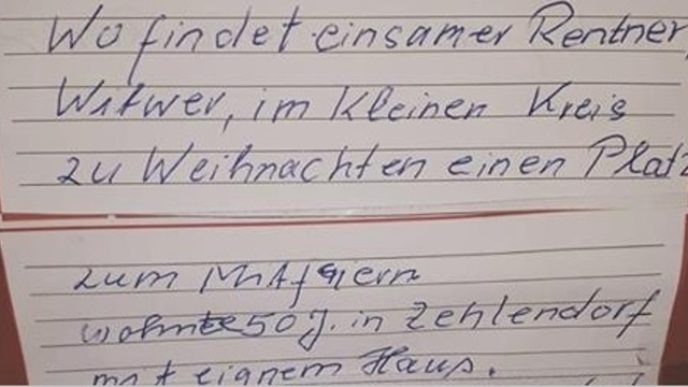 Wo findet einsamer Rentner,
Witwer, im kleinen Kreis
zu Weihnachten einen Platz
zum Mitfeiern
wohnte 50 J. in Zehlendorf
mit eignem Haus.